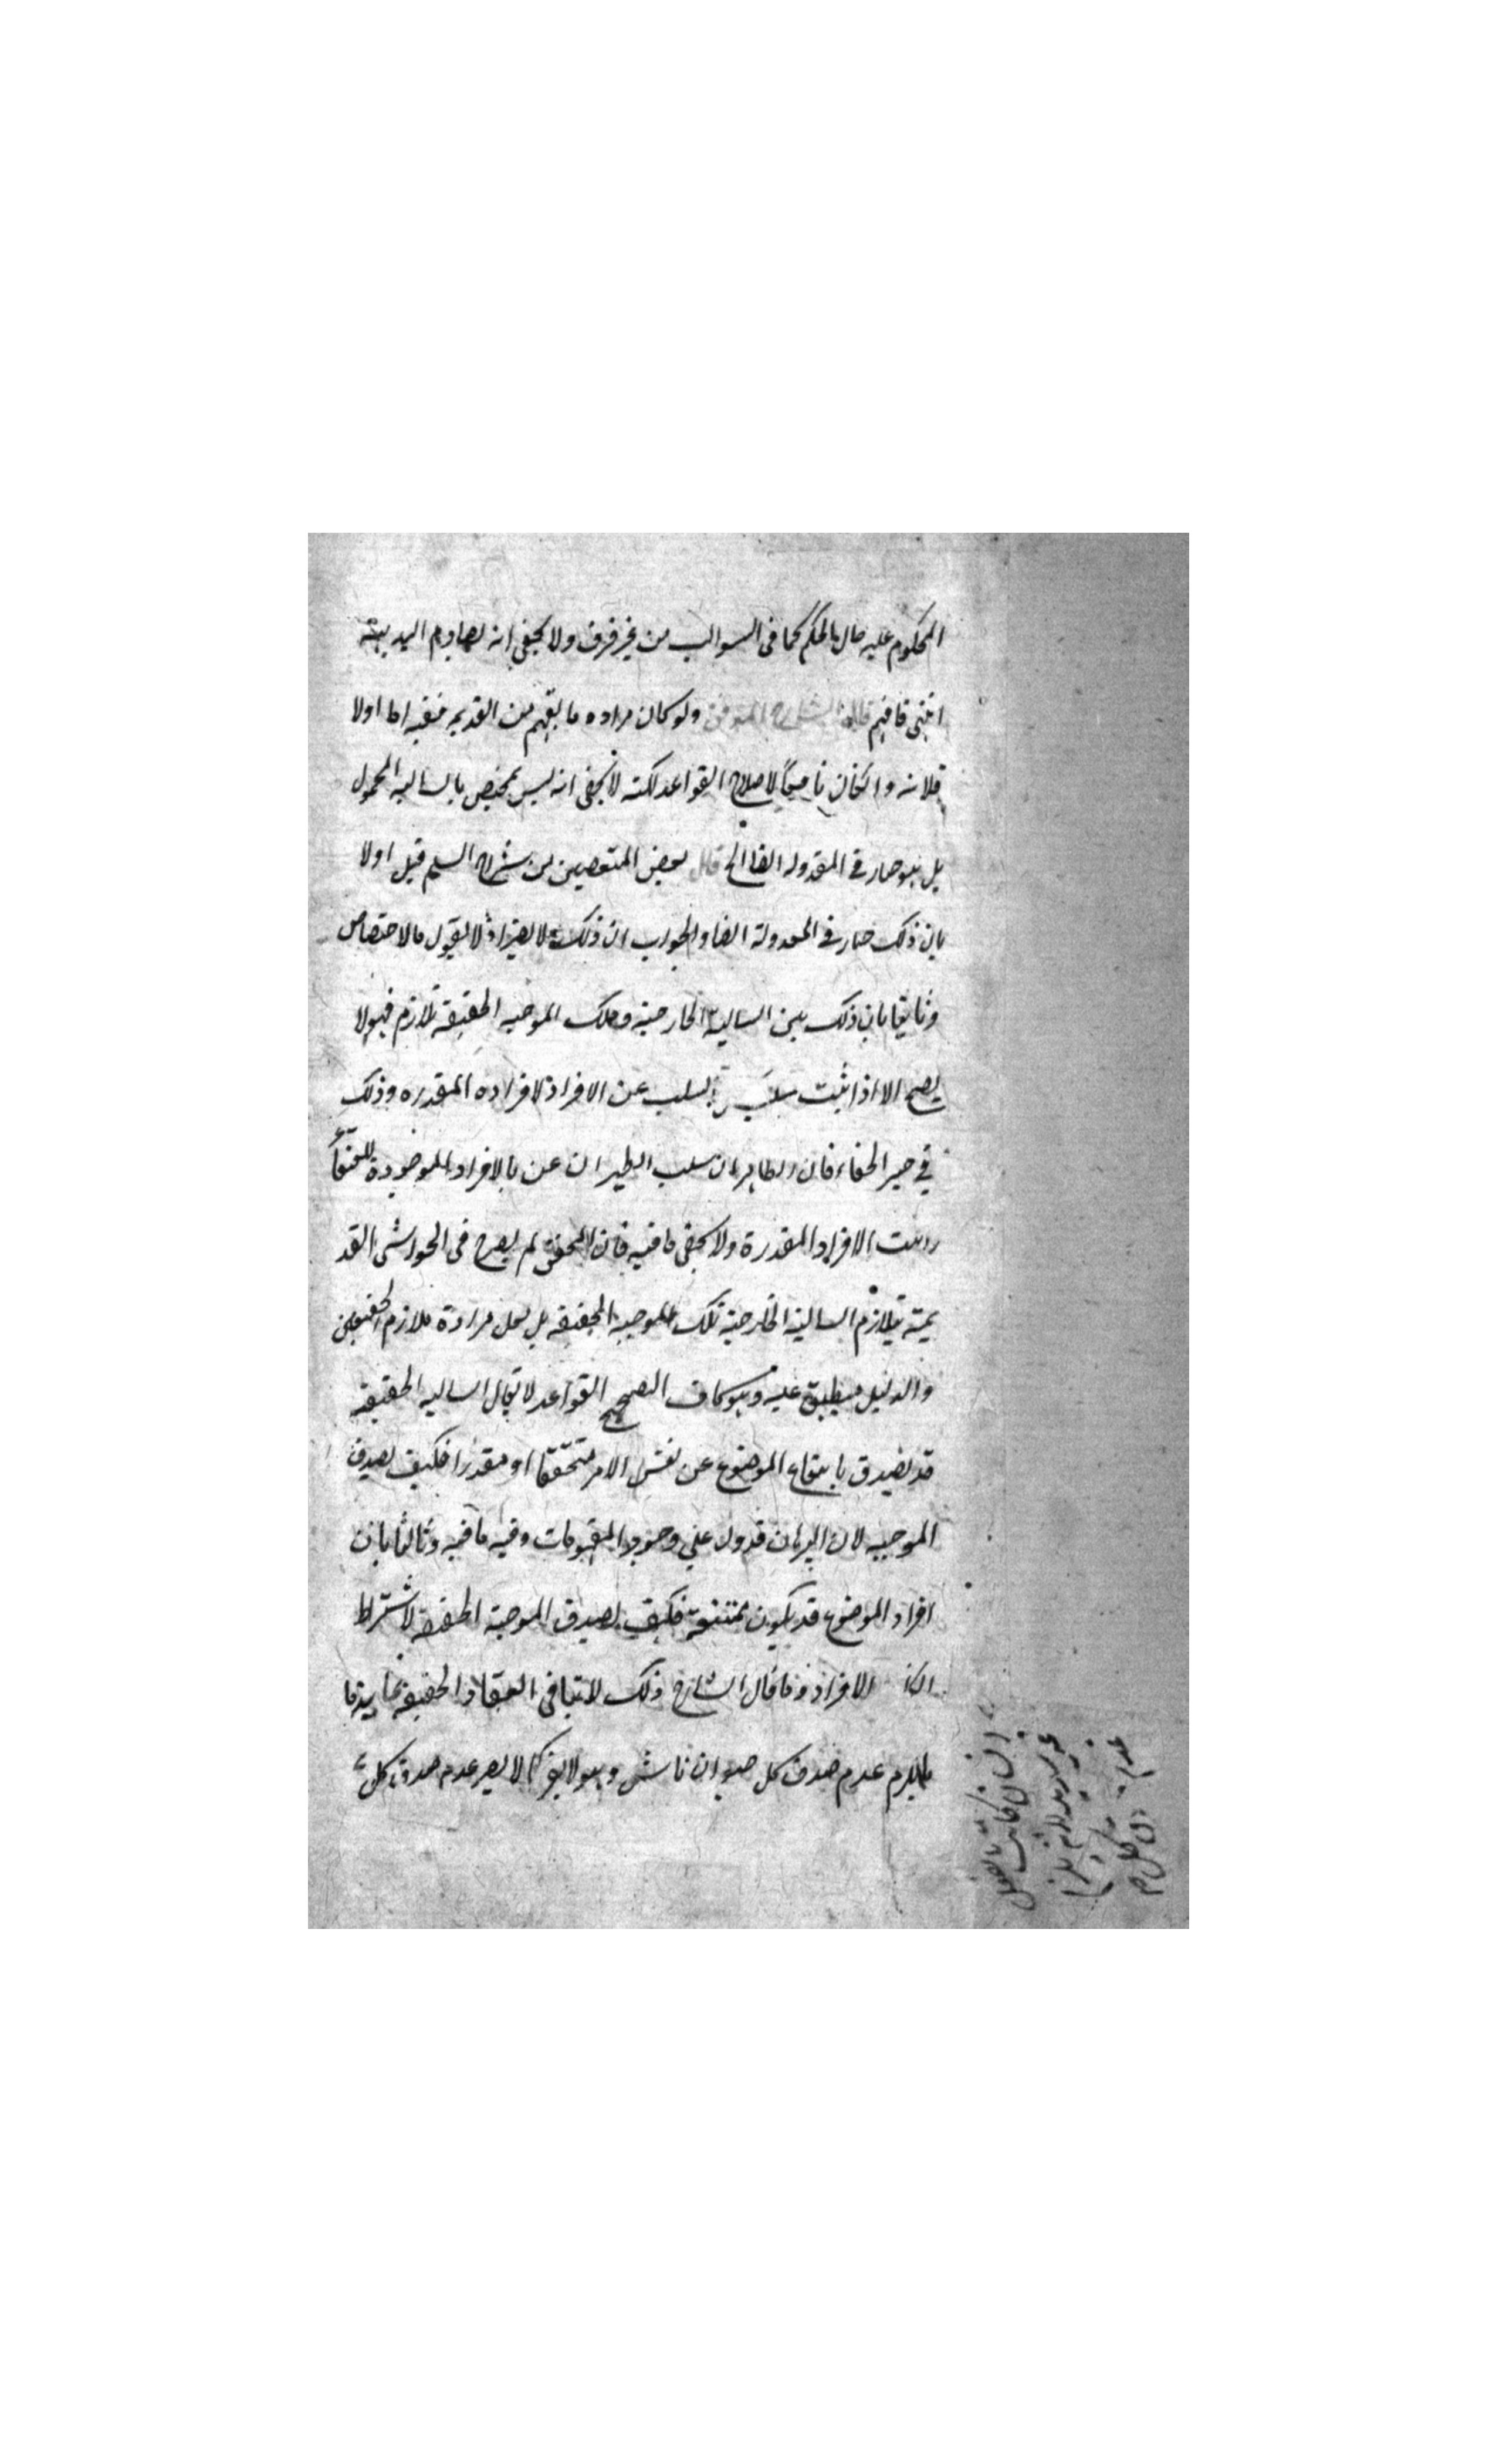 المحكوم عليه حال الحكم كما فى السوالب من غير فرق ولا يخفى انه يصادم البديهة
انتهى فافهم قال الشارح المتوفى ولو كان مراده ما يفهم من القديمة ففيه اما اولا
فلانه وان كان نافعا لاصلاح القواعد لكنه لا يخفى انه ليس بمختص بالسالبة المحمول
بل هو جار فى المعدولة ايضا الخ قال بعض المتعصبين من شراح السلم قيل اولا
بان ذلك جار فى المعدولة ايضا والجواب ان ذلك لا يضر اذ لا يقول بالاختصاص
وثانيا بان ذلك بين السالبة الخارجية وتلك الموجبة الحقيقة تلازم فهو لا
يصح الا اذا ثبت السلب عن الافراد لافراده المقدره وذلك
في حيز الخفاء فان الظاهر ان سلب الطيران عن الافراد الموجودة
الافراد المقدرة ولا يخفى ما فيه فان المحقق لم يصرح فى الحواشى القد
يمة بتلازم السالبة الخارجية تلك الموجبة الحقيقة بل لعل مراده تلازم الحقيقتين
والدليل منطبق عليه وهو كاف لتصحيح القواعد لا يقال السالبة الحقيقة
قد يصدق بانتفاء الموضوع عن نفس الامر متحققا او مقدرا فكيف يصدق
الموجبة لان البرهان قد دل على وجود المفهومات وفيه ما فيه وثالثا بان
افراد الموضوع قد يكون ممتنعة فكيف يصدق الموجبة الحقيقة لاشتراط
الافراد وما قال الشارح ذلك لا ينافى انعقاد الحقيقة
يلزم عدم صدق كل حيوان ماش وهو لا يضر كما لا يضر عدم صدق كل
انسان كاتب بالفعل